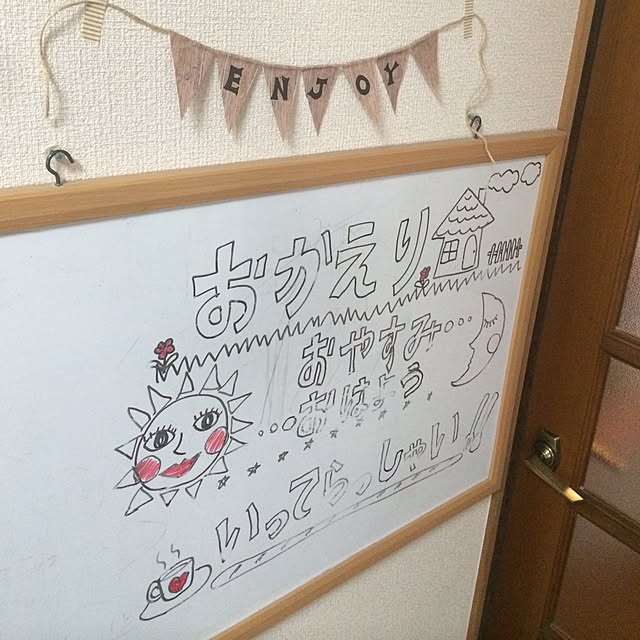 ENJOY
おかえり
おやすみ…
…おはよう
いってらっしゃい!!